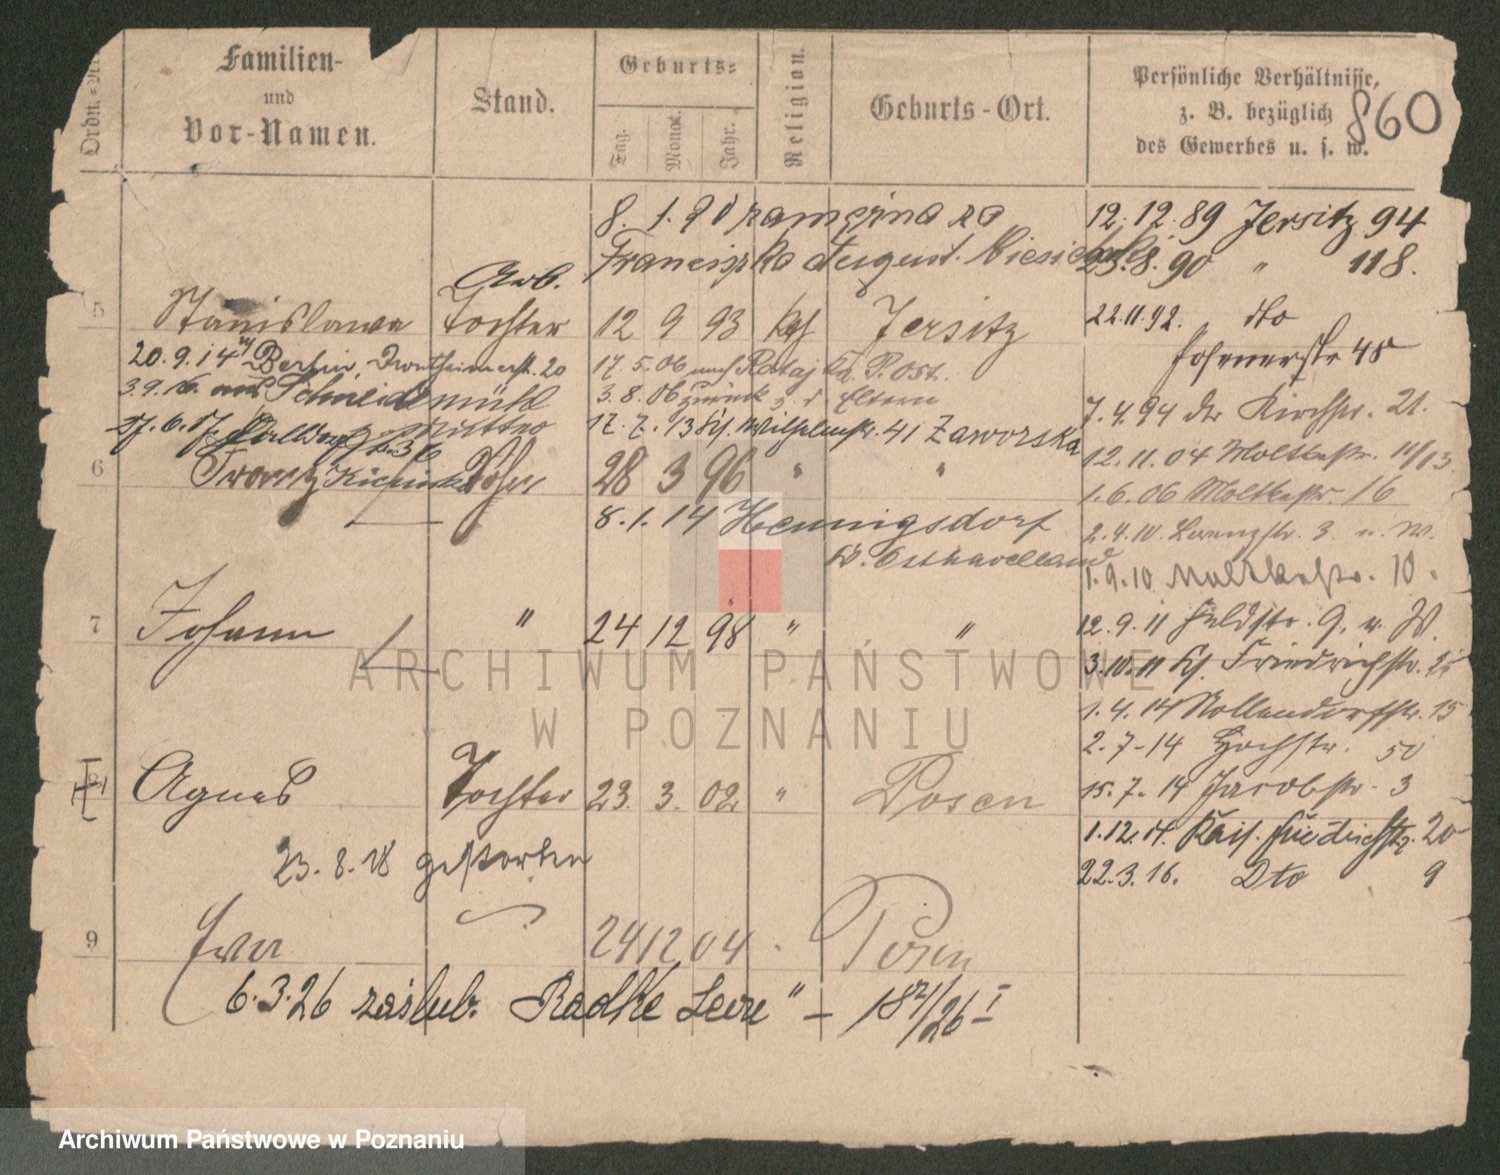 Ordn.=Nr.
Familien-
und
Vor-Namen.
Stand.
Geburts=
Tag.
Monat.
Jahr.
Religion.
Geburts-Ort.
Persönliche Verhältnisse,
z. B. bezüglich
des Gewerbes u. s. w.
860
8. 1. 90
12. 12. 89 Jersitz 94
Franciszka August.
23. 8. 90 " 118.
Arb.
5 Stanislawa Tochter 12 9 93 kath Jersitz
22.11.92. dto
48
20.9.14 Berlin, Drontheimerstr. 20
17.5.06 nach Rataj Kr. P. Ost.
3.9.16. Schneidemühl
3.8.06 zurück z. d. Eltern
7.4.94 Kirchstr. 21.
17.7.13 Wilhelmstr. 41 Zaworska
6 Franz 28 3 96 " "
12.11.04 Moltkestr. 11/13.
1.6.06 Moltkestr. 16
8.1.14 Hennigsdorf
Kr. Osthavelland
2.4.10 Lorenzstr. 3 u. W.
1.9.10 Moltkestr. 10.
7 Johann " 24 12 98 " "
12.9.11 Feldstr. 9. u. W.
3.10.11 Friedrichstr.
1.4.14 Nollendorfstr. 15
2.7.14 Hochstr. 50
8 Agnes Tochter 23. 3. 02 " Posen
15.7.14 Jacobstr. 3
1.12.14. Kais. Friedrichstr. 20
23.8.18 gestorben
22.3.16. Dto 9
9 Ewa 24 12 04 Posen
6.3.26 zaślub. "Radtke Leon" – 182/26 I
ARCHIWUM PAŃSTWOWE
W POZNANIU
Archiwum Państwowe w Poznaniu